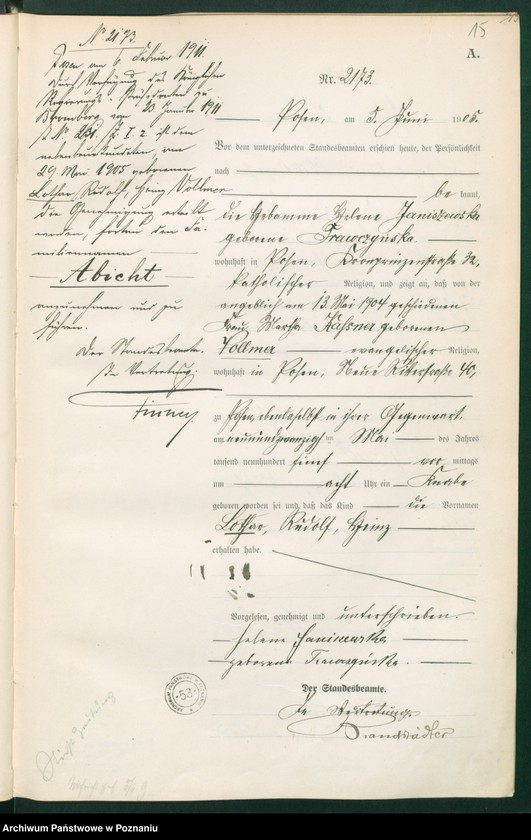 15
A.
Nr. 2173.
Posen, am 5. Juni 1905.
Vor dem unterzeichneten Standesbeamten erschien heute, der Persönlichkeit
nach
be kannt,
die Hebamme Helene Janiszewska
geborene Frawczynska
wohnhaft in Posen, Kronprinzenstraße 32,
katholischer Religion, und zeigte an, daß von der
angeblich am 13. Mai 1904 geschiedenen
Frau Martha Kassner geborenen
Vollmer evangelischer Religion,
wohnhaft in Posen, Neue Ritterstraße 40,
zu Posen, ebendaselbst in ihrer Gegenwart
am neunundzwanzigsten Mai des Jahres
tausend neunhundert fünf vor mittags
um acht Uhr ein Knabe
geboren worden sei und daß das Kind die Vornamen
Lothar, Rudolf, Heinz
erhalten habe.
Vorgelesen, genehmigt und unterschrieben.
Helene Janiszewska
geborene
Der Standesbeamte.
In Vertretung.
Brandstädter
No. 2173.
Posen am 6. Februar 1911.
Durch Verfügung des Königlichen
Regierungs-Präsidenten zu
Bromberg vom 23 Januar 1911
No. 231. I. 2 ist dem
nebenbeurkundeten, am
29. Mai 1905 geborenen
Lothar, Rudolf, Heinz Vollmer
die Genehmigung erteilt
worden, fortan den Fa-
miliennamen
Abicht
anzunehmen und zu
führen.
Der Standesbeamte.
In Vertretung:
53
Archiwum Państwowe w Poznaniu